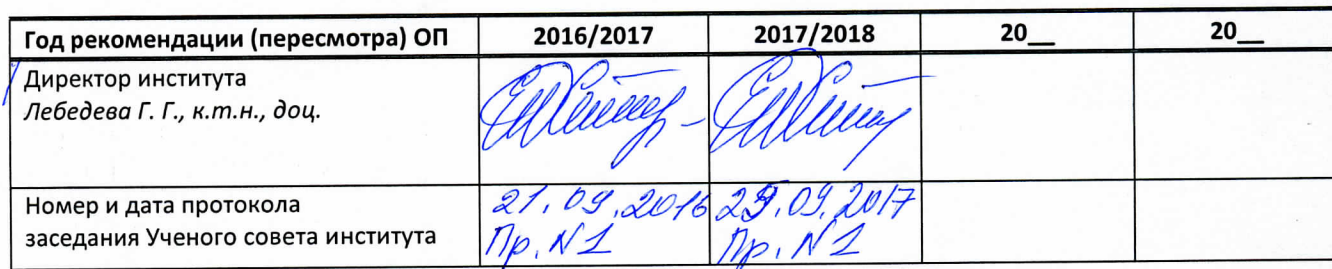 Год рекомендации (пересмотра) ОП 2016/2017 2017/2018 20__ 20__
Директор института
Лебедева Г. Г., к.т.н., доц.
Номер и дата протокола
заседания Ученого совета института
21.09.2016 29.09.2017
Пр. №1 Пр. №1